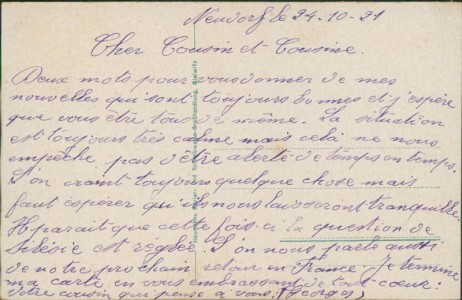 Neudorf le 24-10-21
Cher Cousin et Cousine.
Deux mots pour vous donner de mes
nouvelles qui sont toujours bonnes et j'espère
que vous etre tous de même. La situation
est toujours très calme mais celà ne nous
empêche pas d'être alerté de temps en temps.
L'on craint toujours quelque chose mais
faut espérer qu'ils nous laisseront tranquille.
Il parait que cette fois-ci la question de
Silésie est reglée. L'on nous parle aussi
de notre prochain retour en France. Je termine
ma carte en vous embrassant de tout coeur.
Votre cousin qui pense à vous. (Georges)